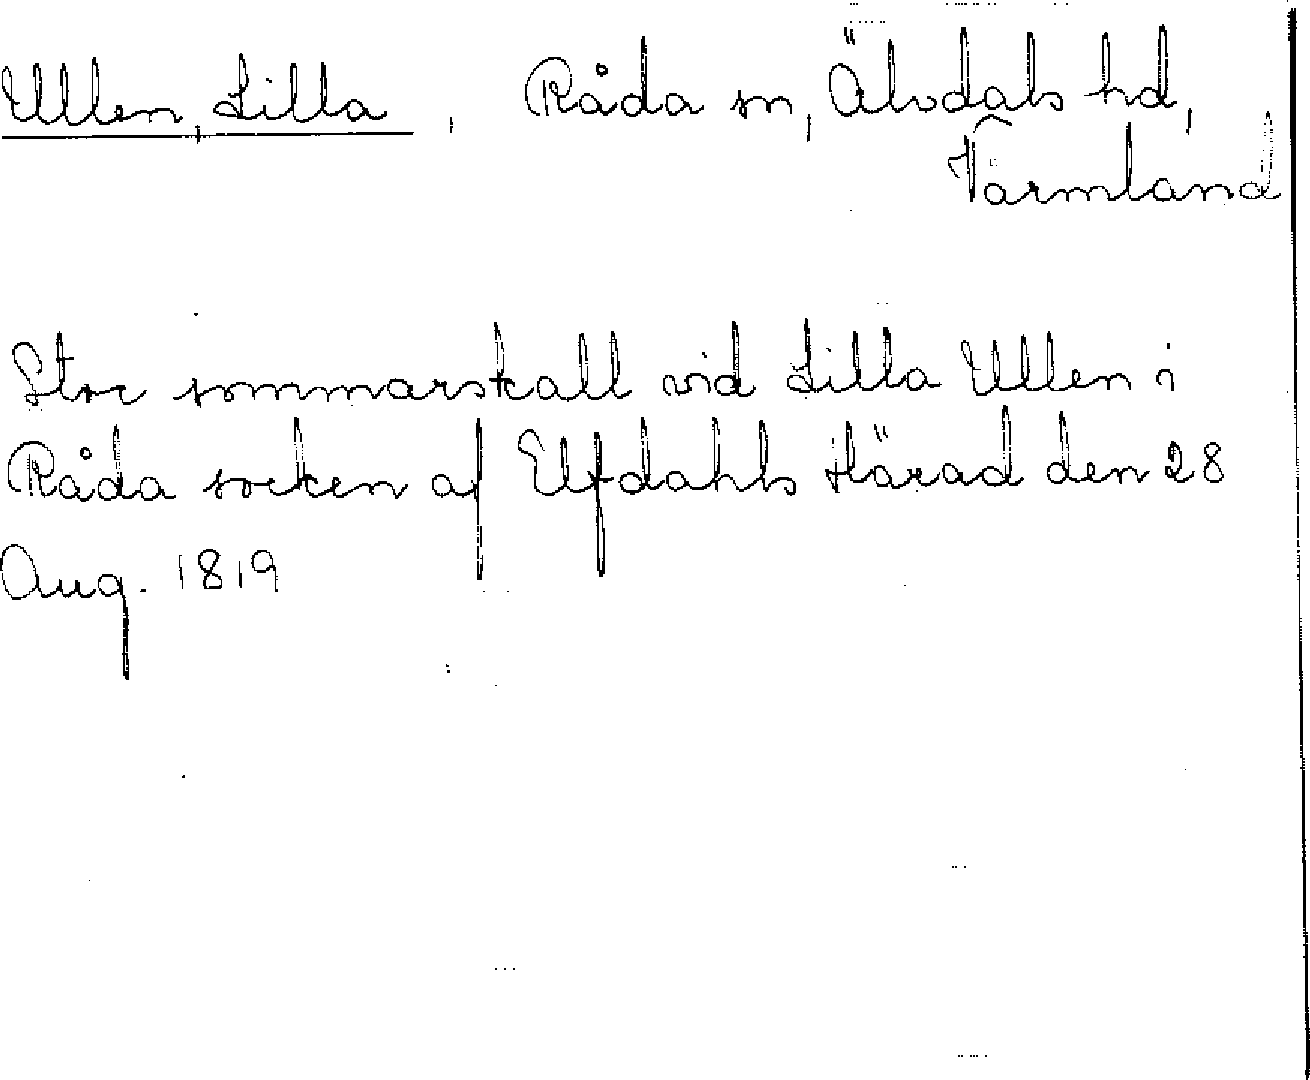 Ullen, Lilla, Råda sn, Älvdals hd,
Värmland
Stor sommarskall vid Lilla Ullen i
Råda socken af Elfdahls Härad den 28
Aug. 1819